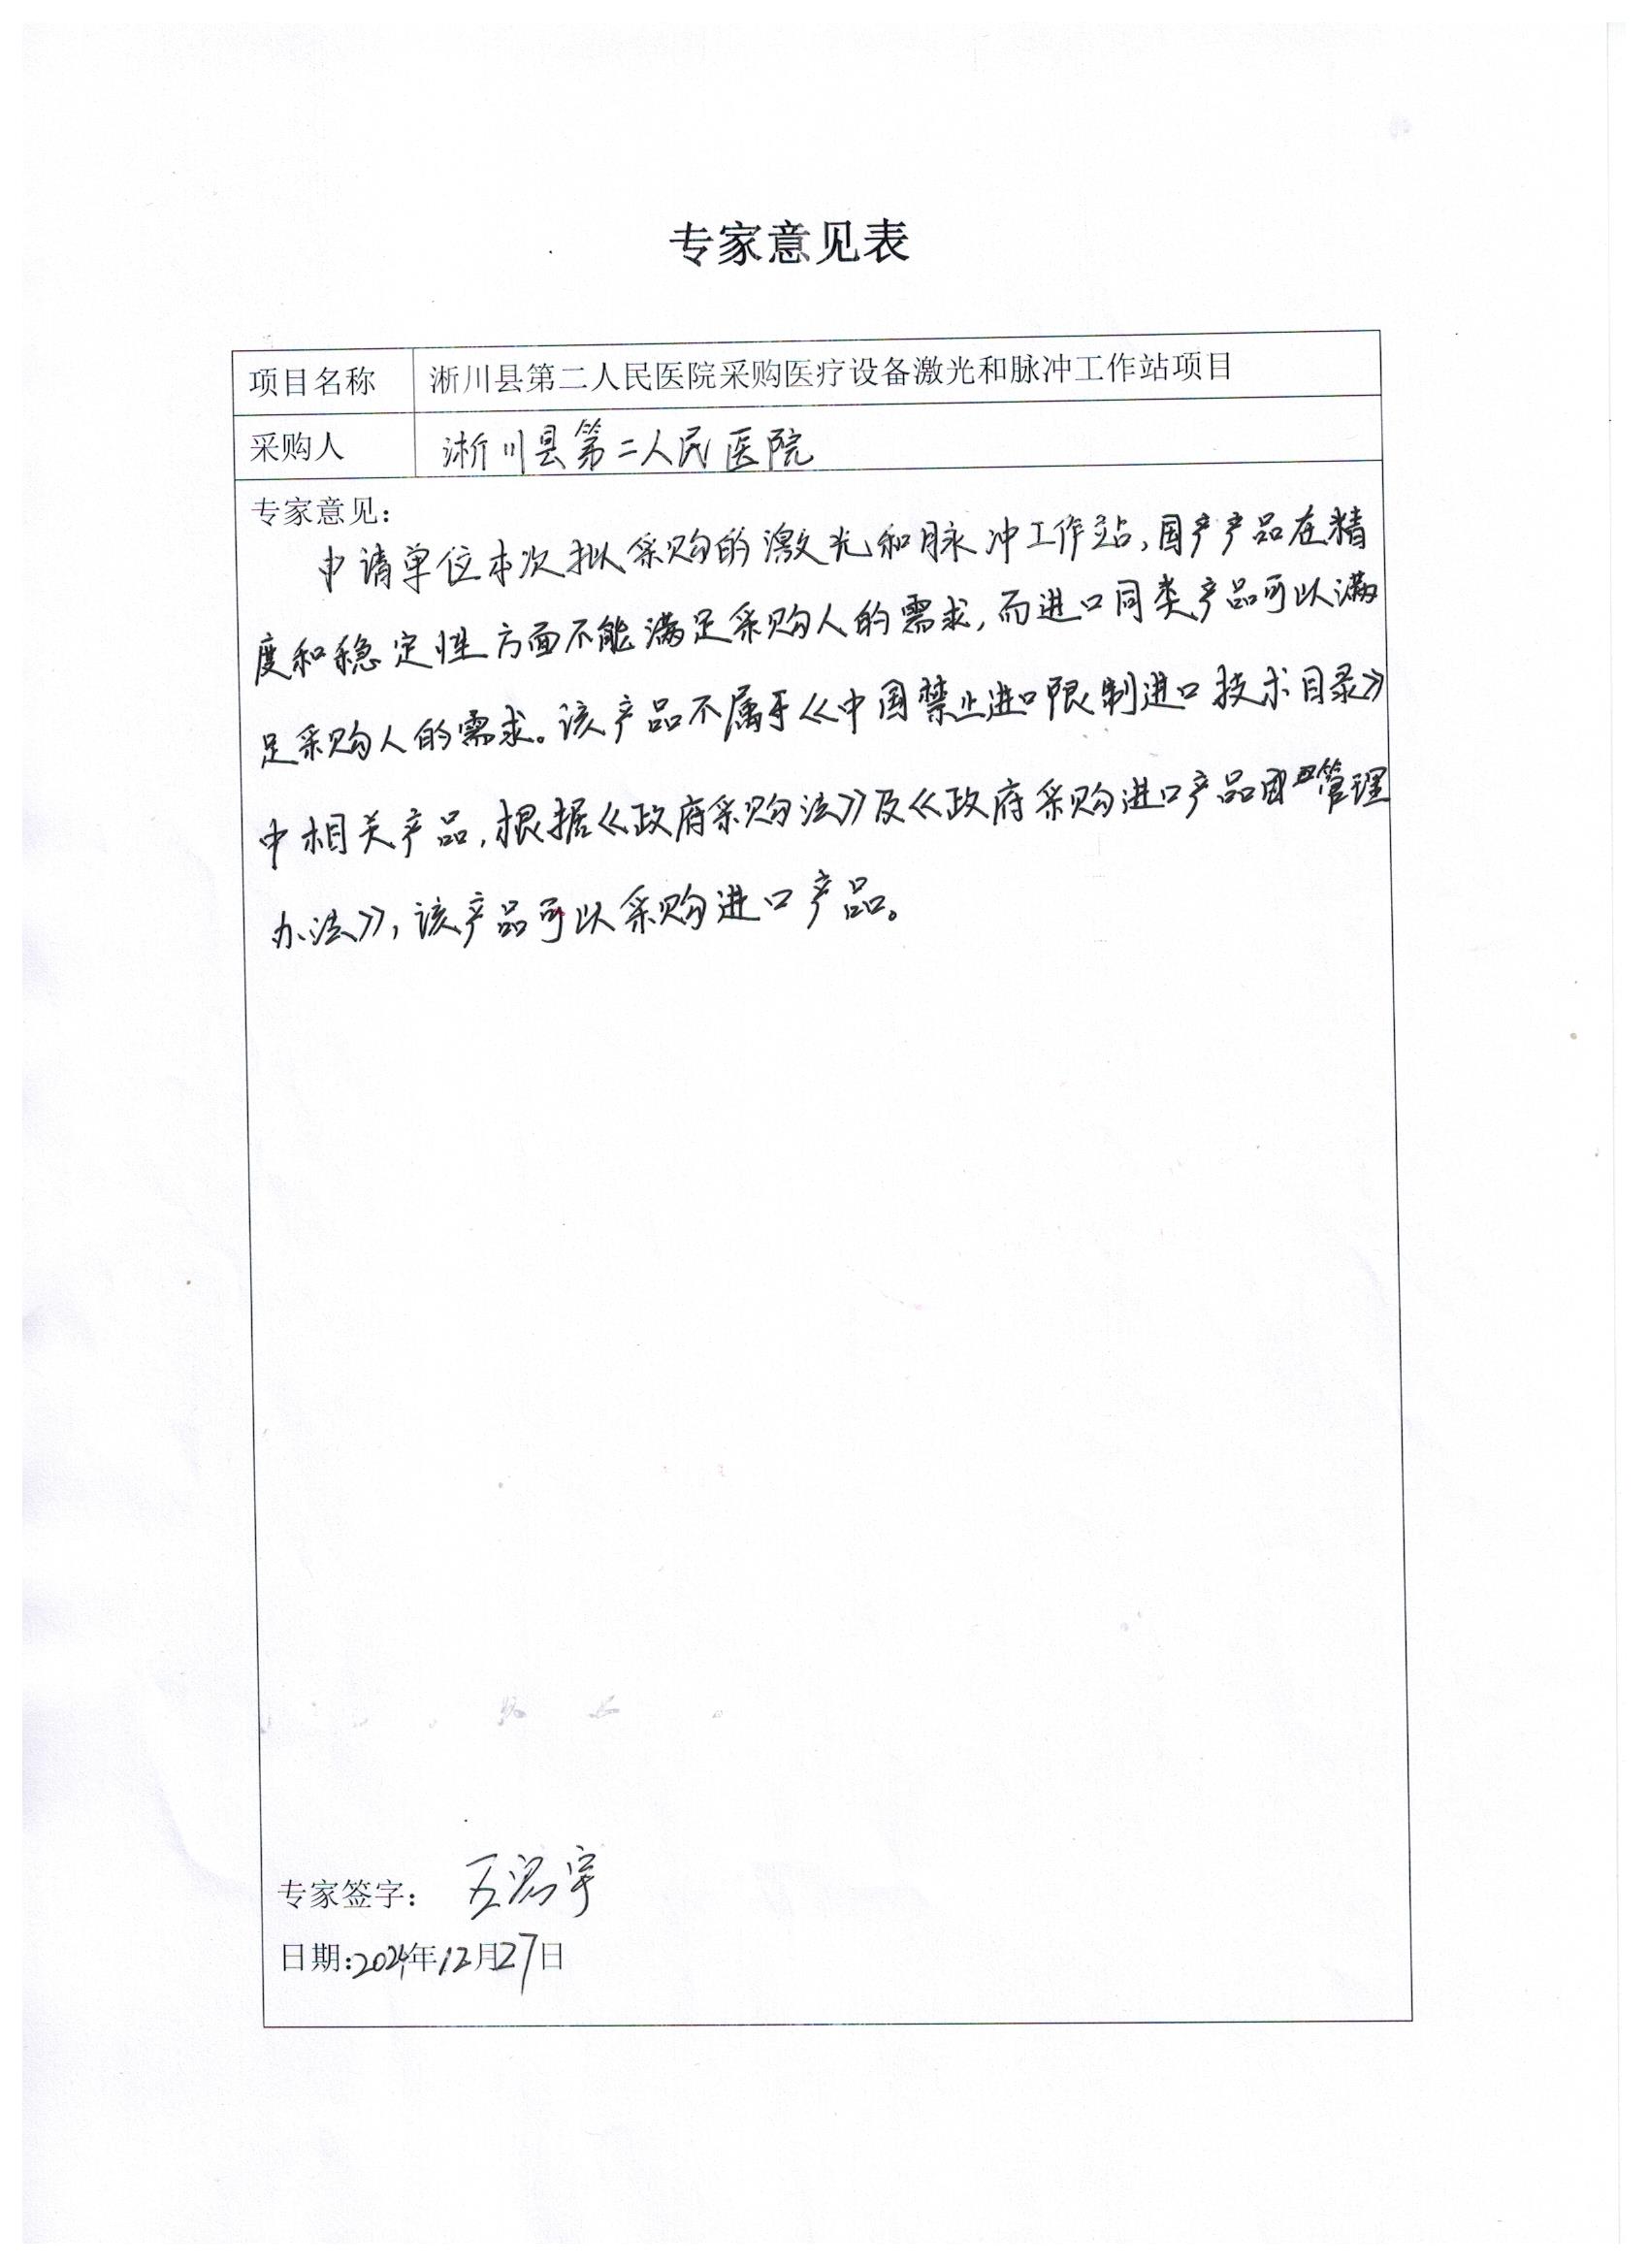 专家意见表
项目名称 淅川县第二人民医院采购医疗设备激光和脉冲工作站项目
采购人 淅川县第二人民医院
专家意见：
申请单位本次拟采购的激光和脉冲工作站，国产产品在精
度和稳定性方面不能满足采购人的需求，而进口同类产品可以满
足采购人的需求。该产品不属于《中国禁止进口限制进口技术目录》
中相关产品，根据《政府采购法》及《政府采购进口产品管理
办法》，该产品可以采购进口产品。
专家签字：
日期：2024年12月27日